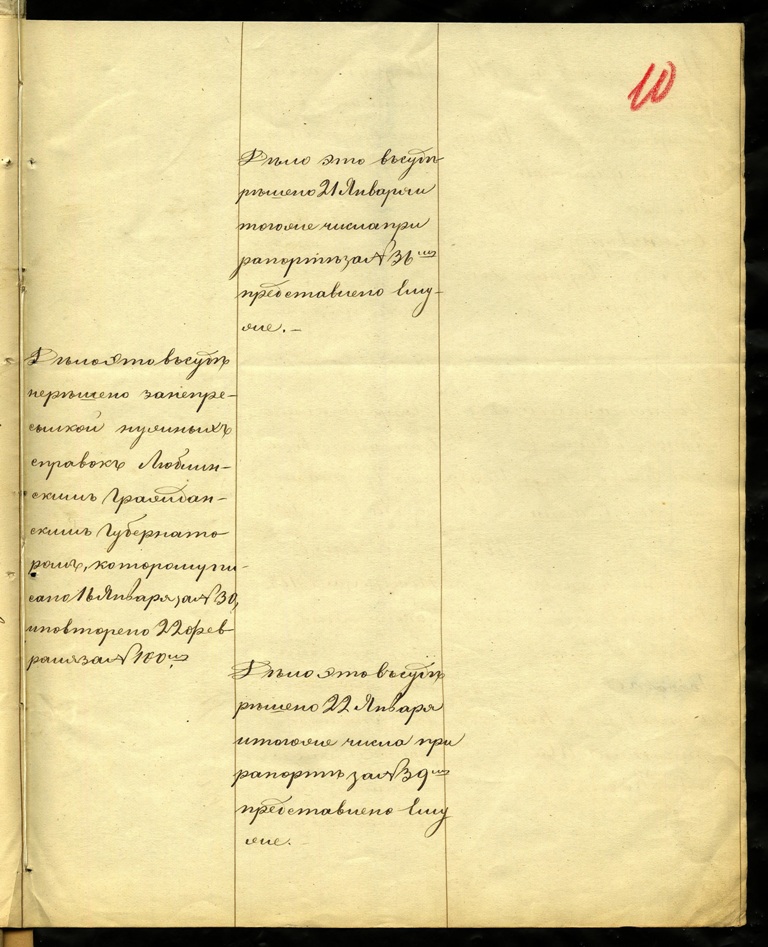 10
Дѣло это въ судѣ
рѣшено 21 Января и
того же числа при
рапортѣ за № 36 ᵐ
представлено Ему
же.—
Дѣло это въ судѣ
нерѣшено за непре-
сылкой нужныхъ
справокъ Люблин-
скимъ Граждан-
скимъ Губернато-
ромъ, которому пи-
сано 16 Января за № 30,
и повторено 22 фев-
раля за № 100 ᵐ
Дѣло это въ судѣ
рѣшено 22 Января
и того же числа при
рапортѣ за № 39 ᵐ
представлено Ему
же.